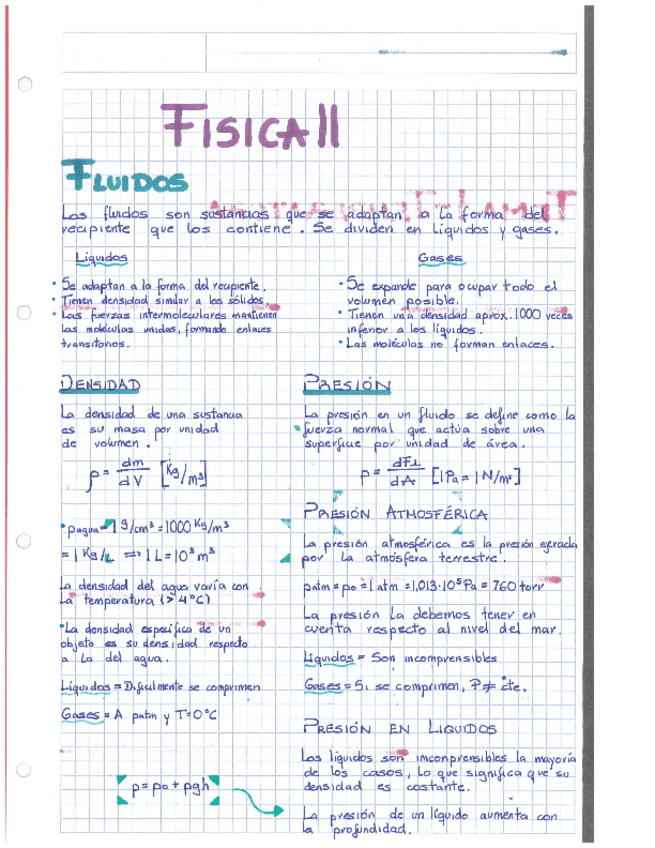 FISICA II
FLUIDOS
Los fluidos son sustancias que se adaptan a la forma del
recipiente que los contiene. Se dividen en líquidos y gases.
Líquidos
• Se adaptan a la forma del recipiente.
• Tienen densidad similar a los sólidos.
• Las fuerzas intermoleculares mantienen
las moléculas unidas, formando enlaces
transitorios.
Gases
• Se expande para ocupar todo el
volumen posible.
• Tienen una densidad aprox. 1000 veces
inferior a los líquidos.
• Las moléculas no forman enlaces.
DENSIDAD
La densidad de una sustancia
es su masa por unidad
de volumen.
ρ = dm/dV [Kg/m³]
• ρagua = 1 g/cm³ = 1000 Kg/m³
= 1 Kg/L => 1 L = 10³ m³
La densidad del agua varía con
la temperatura (> 4°C)
• La densidad específica de un
objeto es su densidad respecto
a la del agua.
Líquidos = Dificilmente se comprimen
Gases = A patm y T=0°C
p = p0 + ρgh
PRESIÓN
La presión en un fluido se define como la
fuerza normal que actúa sobre una
superficie por unidad de área.
p = dF⊥/dA [1Pa = 1N/m²]
PRESIÓN ATMOSFÉRICA
La presión atmosférica es la presión ejercida
por la atmósfera terrestre.
patm = p0 = 1 atm = 1,013·10⁵ Pa = 760 torr
La presión la debemos tener en
cuenta respecto al nivel del mar.
Líquidos = Son incomprensibles
Gases = Si se comprimen, P ≠ cte.
PRESIÓN EN LIQUIDOS
Los líquidos son inconprensibles la mayoría
de los casos, lo que significa que su
densidad es costante.
La presión de un líquido aumenta con
la profundidad.